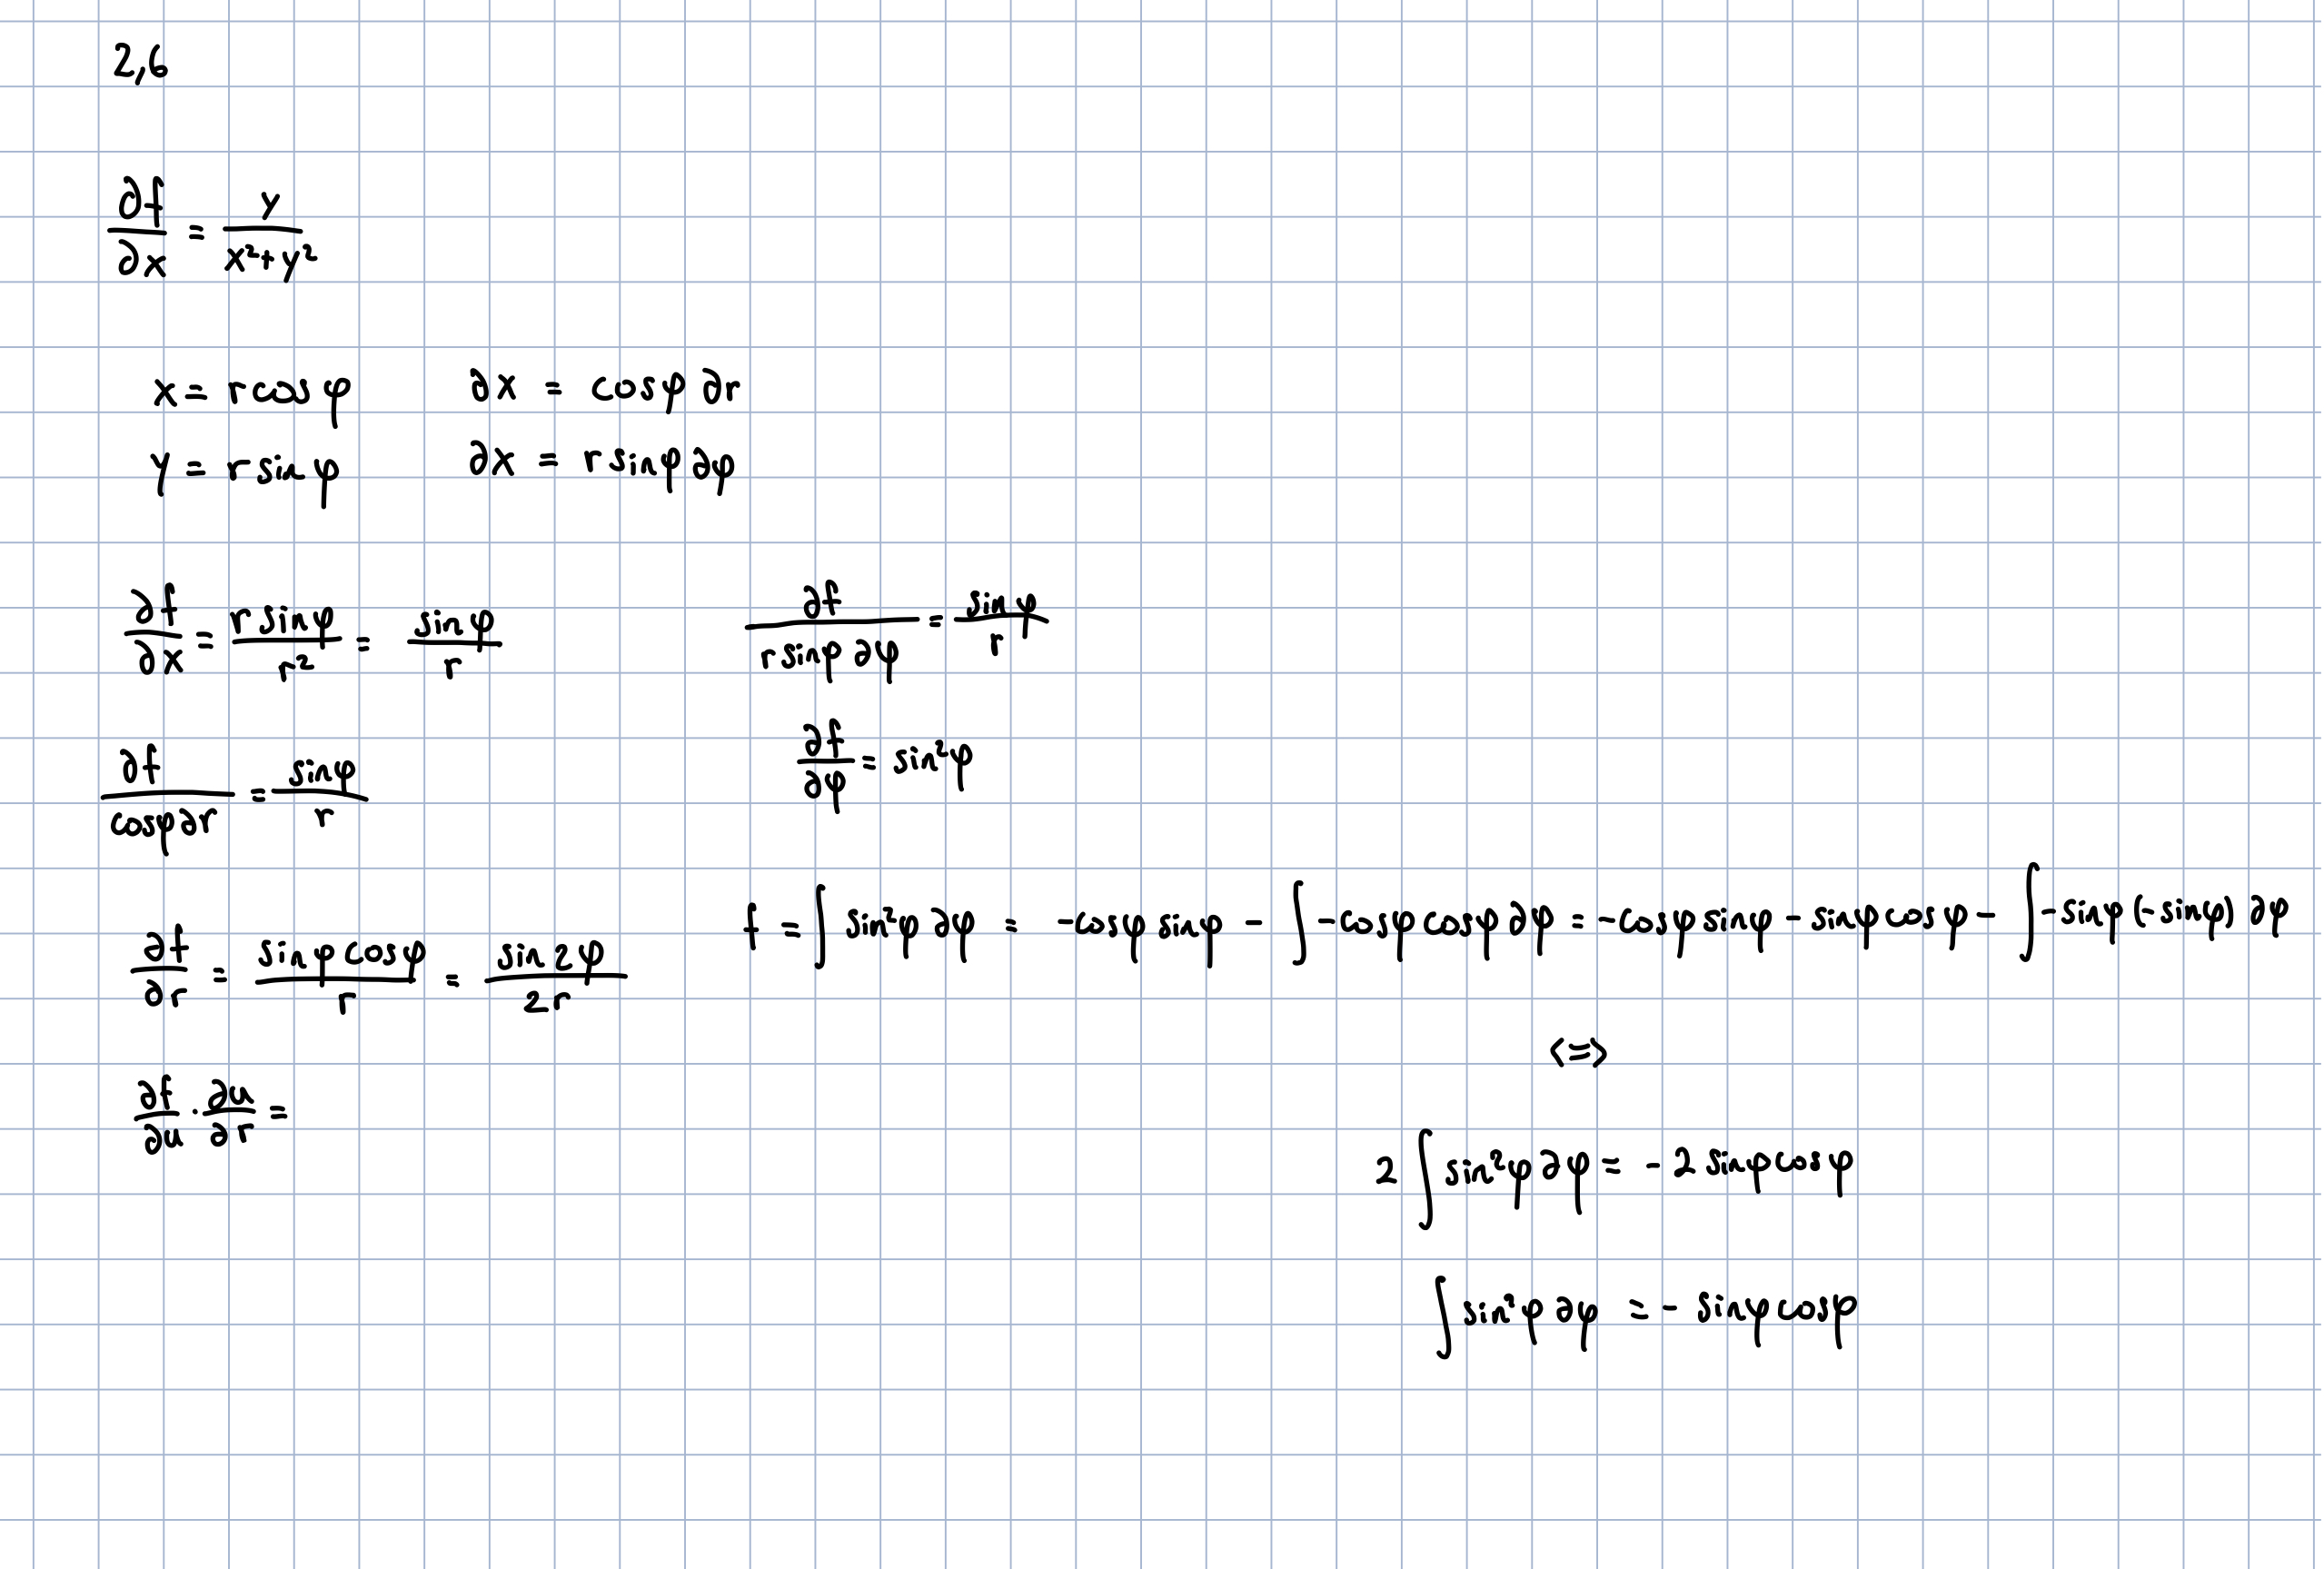 2,6
∂f/∂x = y/(x²+y²)
x = r cosφ    ∂x = cosφ ∂r
y = r sinφ    ∂x = r sinφ ∂φ
∂f/∂x = r sinφ/r² = sinφ/r    ∂f/(r sinφ ∂φ) = sinφ/r
∂f/(cosφ ∂r) = sinφ/r    ∂f/∂φ = sin²φ
∂f/∂r = sinφ cosφ/r = sin 2φ/2r    f = ∫ sin²φ ∂φ = -cosφ sinφ - ∫ -cosφ cosφ ∂φ = -cosφ sinφ - sinφ cosφ - ∫ -sinφ (-sinφ) ∂φ
<=>
∂f/∂u · ∂u/∂r =
2 ∫ sin²φ ∂φ = -2 sinφ cosφ
∫ sin²φ ∂φ = - sinφ cosφ